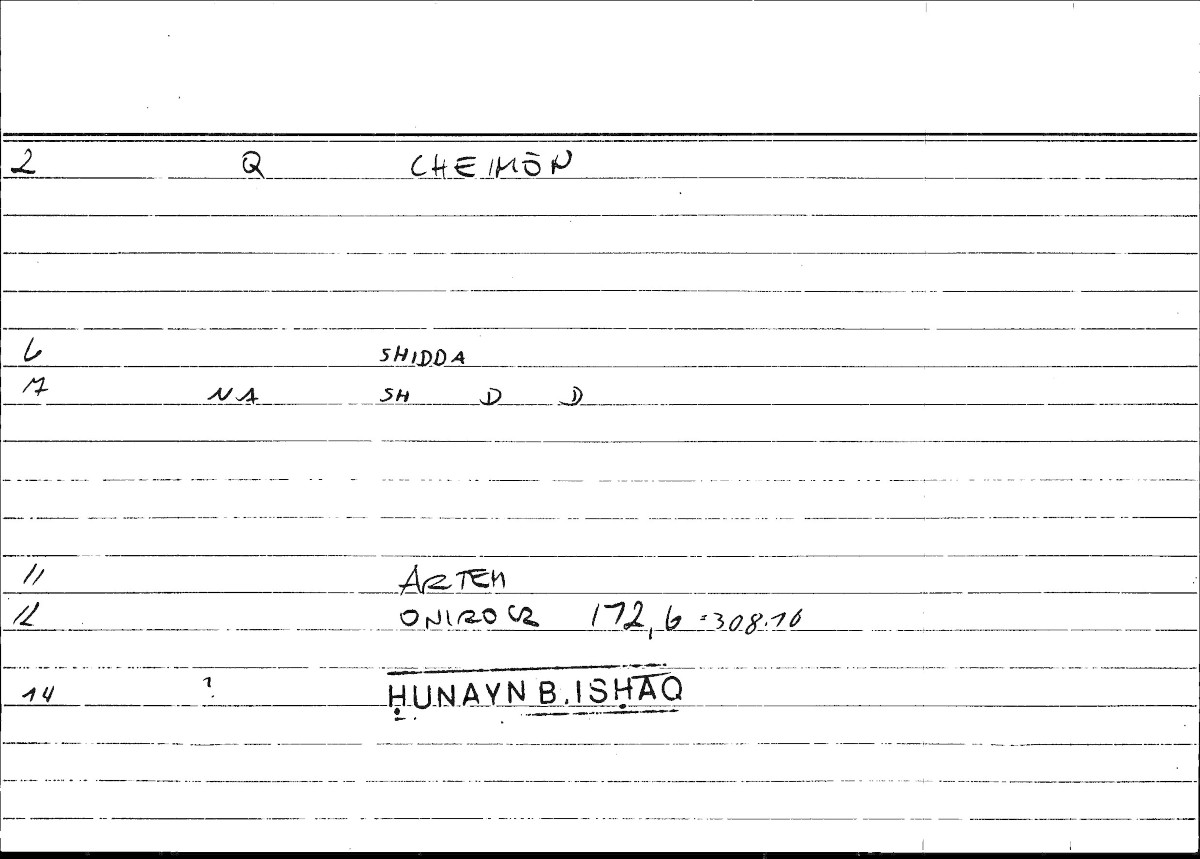 2 Q CHEIMŌN
6 SHIDDA
7 NA SH D D
11 ARTEM
12 ONIROCR 172,6 =308.10
14 ? ḤUNAYN B. ISḤĀQ